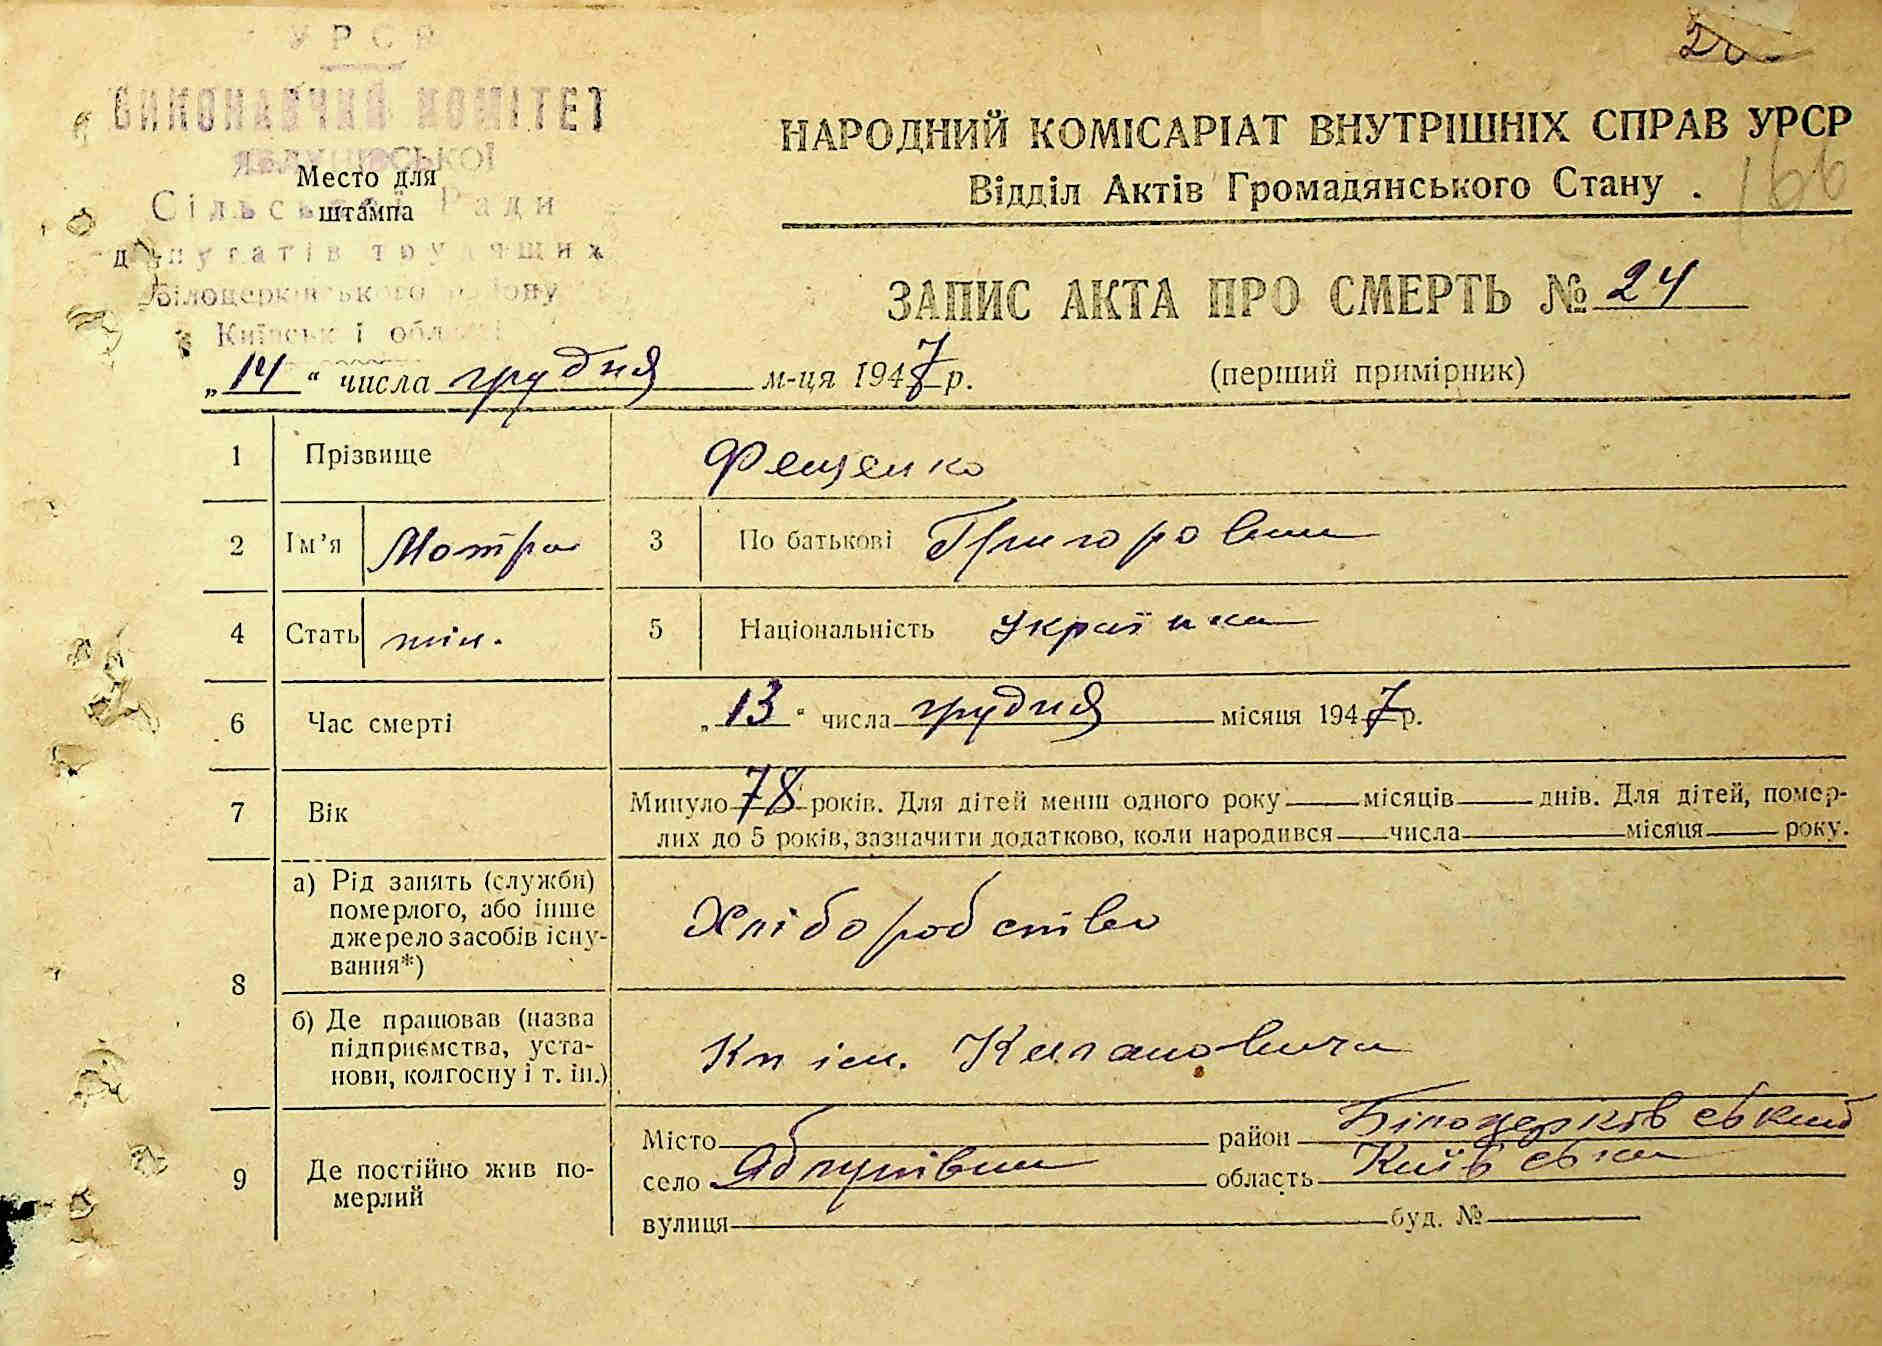 УРСР
ВИКОНАВЧИЙ КОМІТЕТ
ЯБЛУНІВСЬКОЇ
Сільської Ради
депутатів трудящих
Білоцерківського району
Київської області
Место для
штампа
НАРОДНИЙ КОМІСАРІАТ ВНУТРІШНІХ СПРАВ УРСР
Відділ Актів Громадянського Стану .
166
ЗАПИС АКТА ПРО СМЕРТЬ № 24
„14“ числа грудня м-ця 1947 р.
(перший примірник)
1 Прізвище Фещенко
2 Ім’я Мотра 3 По батькові Григоровна
4 Стать жін. 5 Національність Українка
6 Час смерті „13“ числа грудня місяця 1947 р.
7 Вік Минуло 78 років. Для дітей менш одного року місяців днів. Для дітей, помер-
лих до 5 років, зазначити додатково, коли народився числа місяця року.
8 а) Рід занять (служби)
померлого, або інше
джерело засобів існу-
вання*)
Хліборобство
б) Де працював (назва
підприємства, уста-
нови, колгоспу і т. ін.)
Кп ім. Кагановича
9 Де постійно жив по-
мерлий
Місто район Білоцерківський
село Яблунівка область Київська
вулиця буд. №